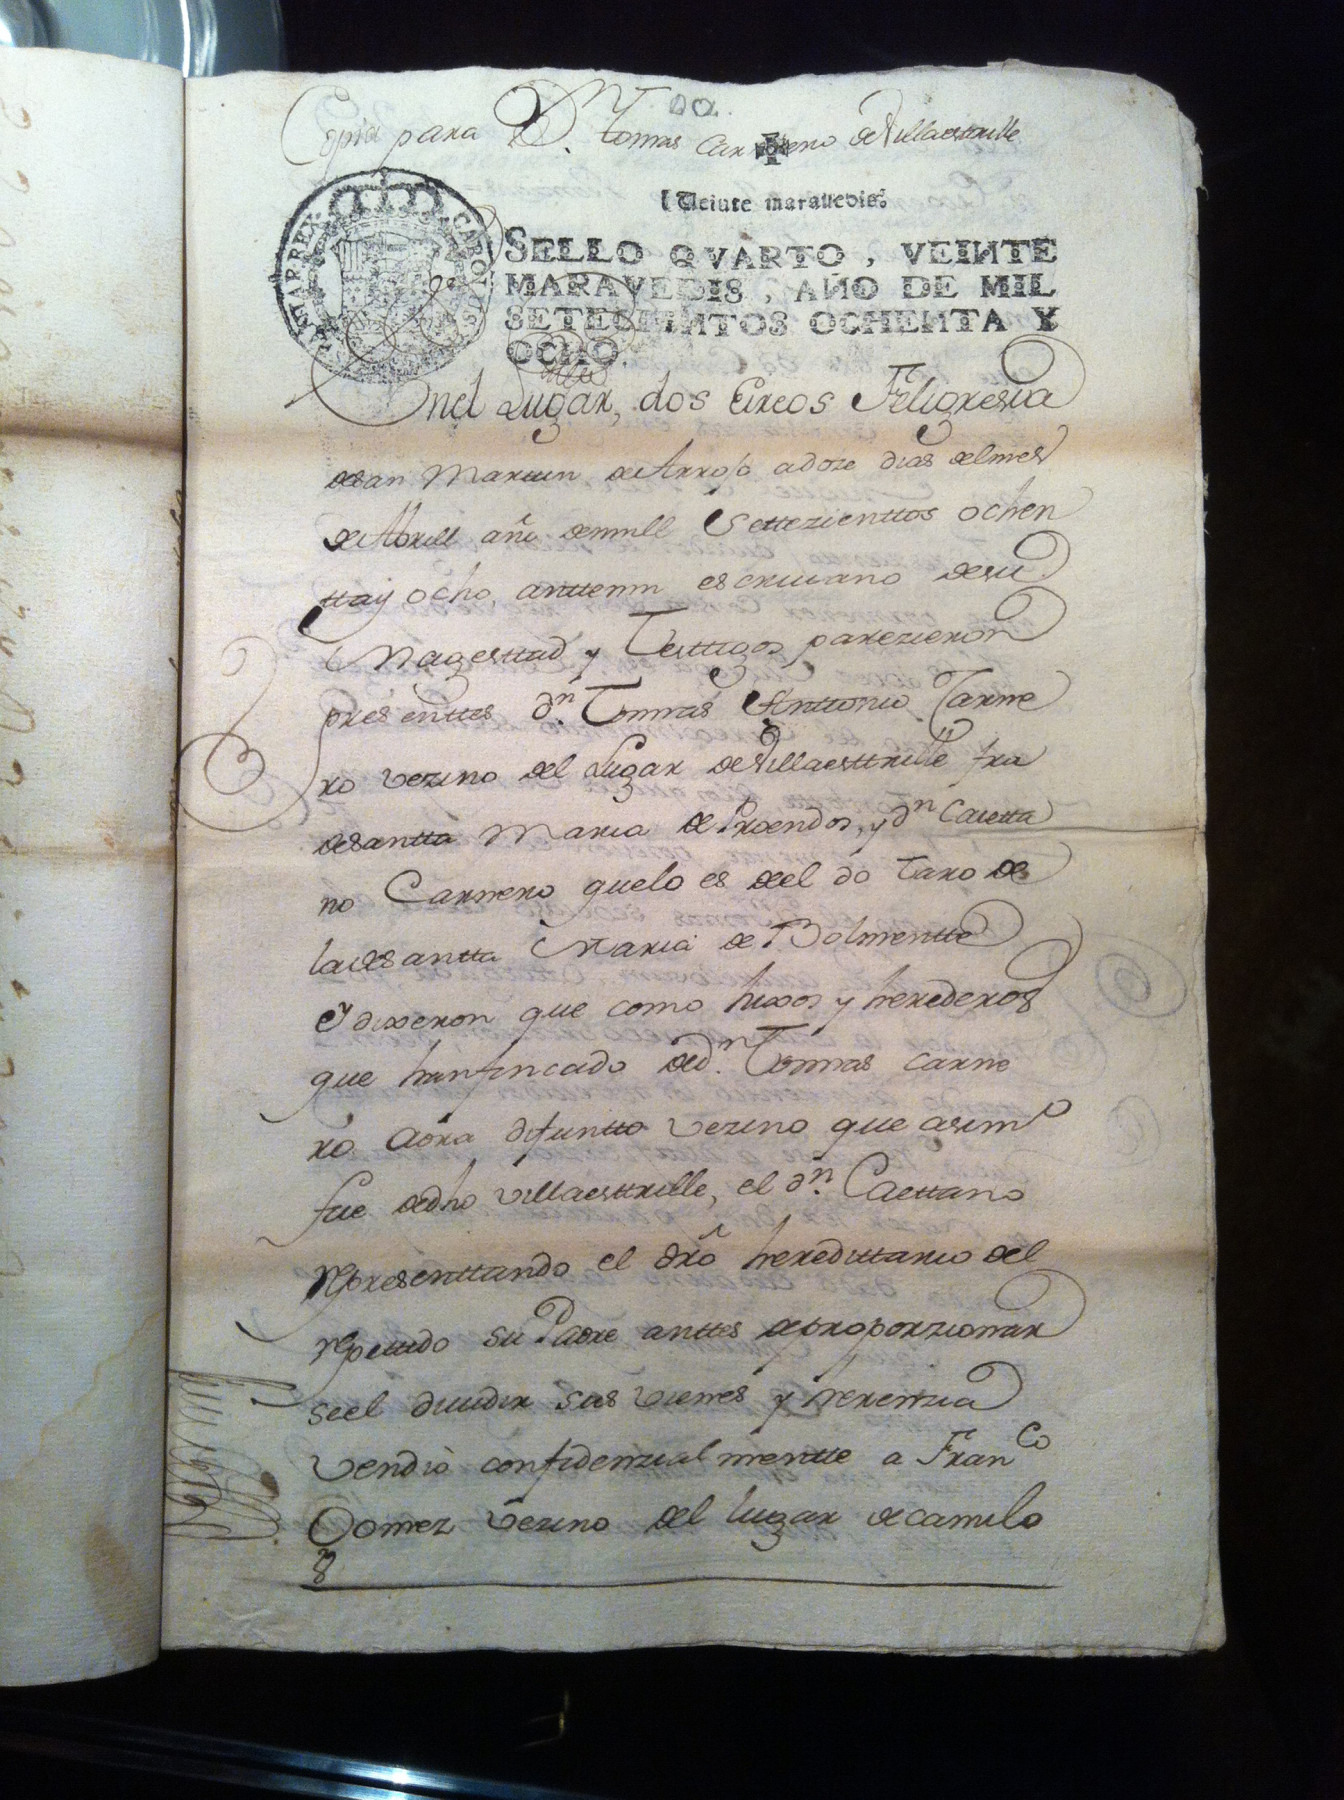 Copia para D.n Tomas Carnero de Villaestrille
Veinte marauedis.
SELLO QVARTO, VEINTE
MARAVEDIS, AÑO DE MIL
SETECIENTOS OCHENTA Y
OCHO.
Enel Lugar, dos Eireos Feligresia
desan Martin de Arrojo adoze dias delmes
de Abrill año demill Settezienttos ochen
ttay ocho, anttemi escriuano desu
Magesttad y Testtigos parezieron
presenttes d.n Tomas Anttonio Carne
ro vezino del Lugar de Villaesttrille fra
desantta Maria de Proendos, y d.n Caietta
no Carnero quelo es deel do de
la desantta Maria de Bolmentte
Y dixeron que como hixos y herederos
que hanfincado de d.n Tomas Carne
ro aora difuntto vezino que asimo
fue dedho Villaesttrille, el d.n Caettano
Representtando el dro heredittario del
rrepettido su Padre anttes deproporzionar
seel diuidir sus vienes y herenzia
Vendió confidenzialmentte a Franco
Gomez vezino del lugar de Camilo